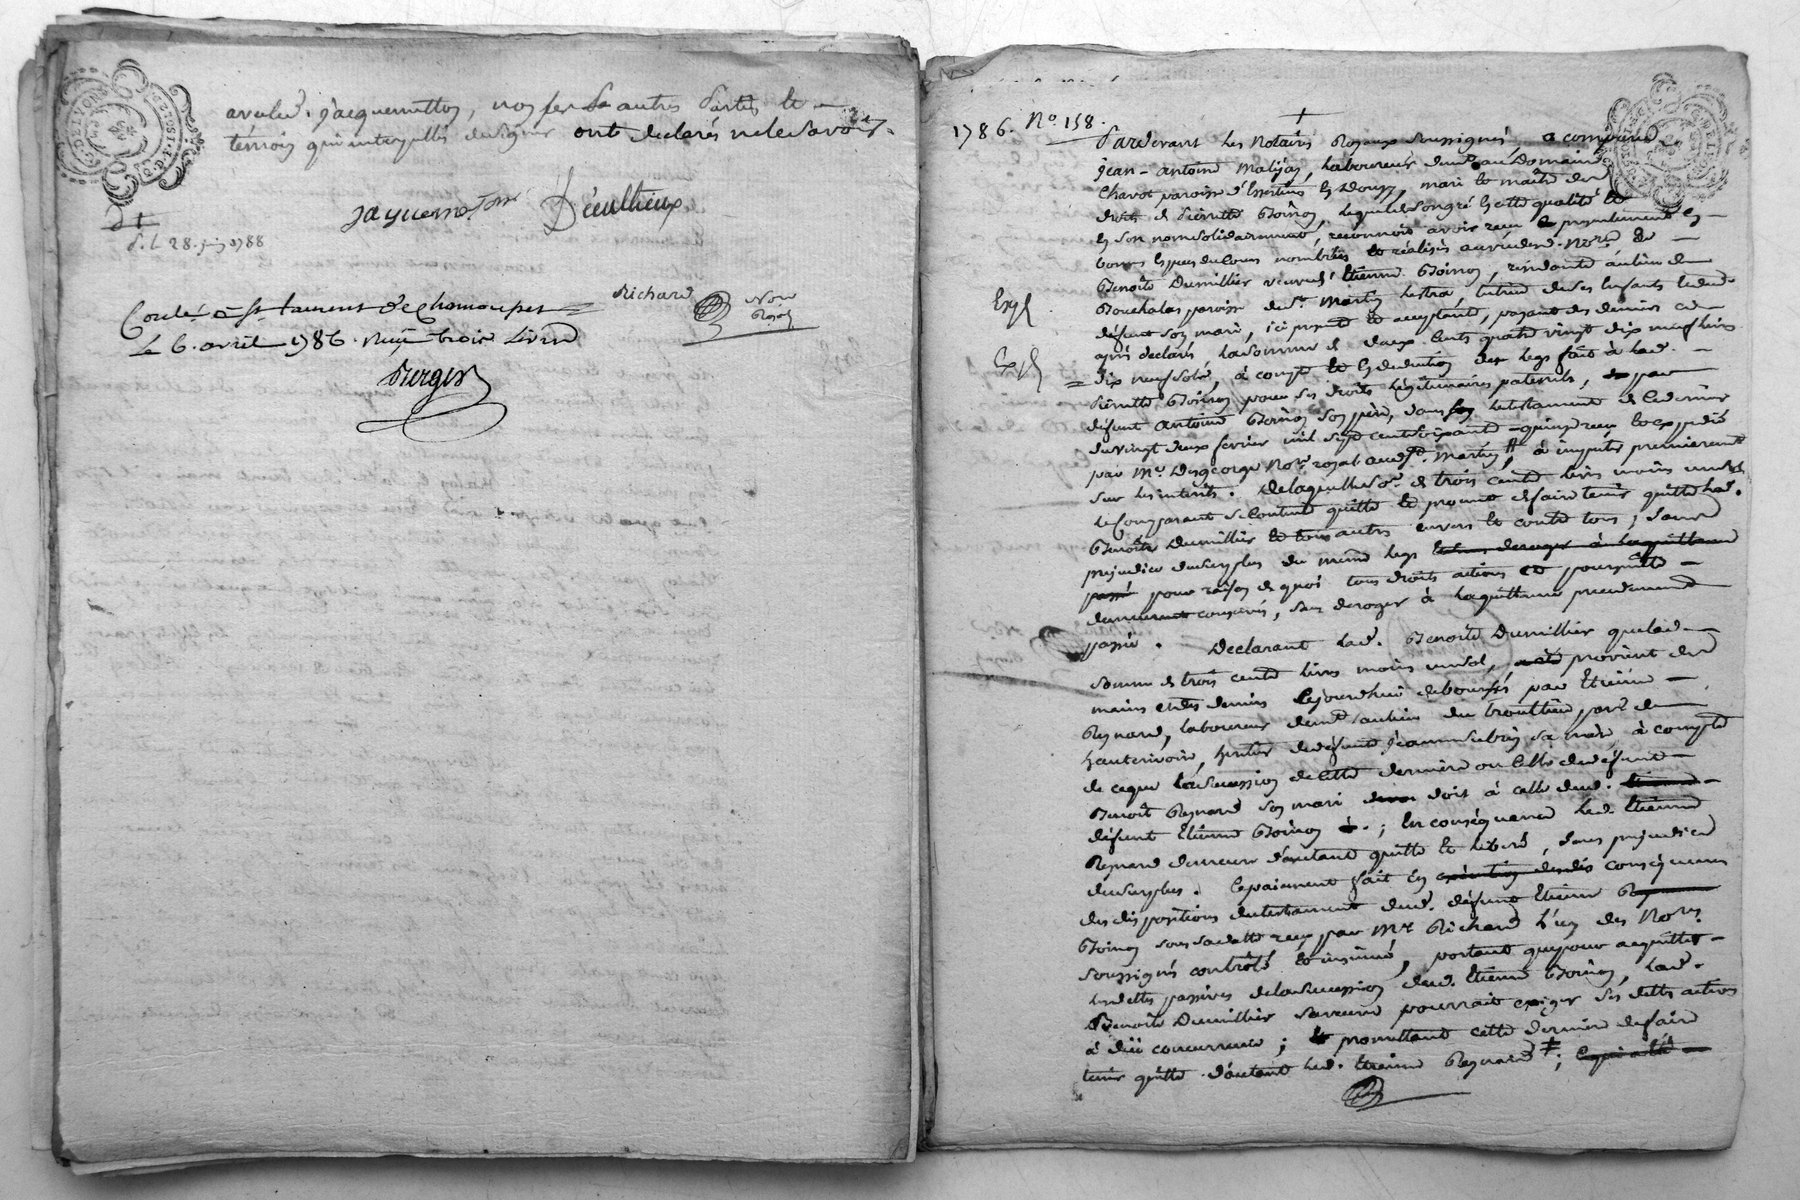 avec led. jacquemetton, non les autres parties le
témoin qui interpellés de signer ont declarés ne le savoir.
jaquemeton Déeullieux
d. l. 28. juin 1788
Richard Nore Royal
Conlé. à St. Laurent de Chamousset
Le 6. avril 1786. Reçu trois livres
Berger
1786. No. 158.
Pardevant les Notaires Royaux soussignés, a comparu
jean-antoine laboureur demt. au Domaine
Charot paroisse d'Essertines en Donzy, mari et maitre des
droits de Pierrette Boinon, lequel de son gré en cette qualité et
en son nom solidairement, reconnoit avoir reçu présentement en
bonnes espèces de cours nombrées et réalisées au vû desd. Nores. de
Benoite Dumillier veuve d'Etienne Boinon, résidante au lieu de
paroisse de St. Martin Lestra, tutrice de ses enfants et dud.
défunt son mari, ici présente et acceptante, payant des deniers ci
Exp.
après declarés, la somme de deux cents quatre vingt dix neuf livres
Exp.
dix neuf sols, à compte et en deduction des legs fait à lad.
Pierrette Boinon pour ses droits légitimaires paternels, par
défunt antoine Boinon son père, dans le testament de ce dernier
du vingt deux fevrier mil sept cent soixante-quinze reçu et expedié
par Me. Desgeorge Nore. royal aud. St. Martin, à imputer premierement
sur les interets. De laquelle so[e]. de trois cents livres moins un sol
le Comparant se contente quitte et promet de faire tenir quitte lad.
Benoite Dumillier et tous autres envers et contre tous; sans
prejudice du surplus du même legs sans deroger à la quittance
passée pour raison de quoi tous droits actions et poursuites
demeurent conservés, sans deroger à la quittance precedemment
passée. Declarant lad. Benoite Dumillier que lad.
somme de trois cents livres moins un sol, provient des
mains et des deniers cejourdhui deboursés par Etienne
Reynard, laboureur demt. au lieu du parse. de
hauterivoire, heritier de défunte jeanne sa mere, à compte
de ce que la succession de cette derniere ou celle de défunt
Benoit Reynard son mari doit à celle dud.
défunt Etienne Boinon; En conséquence led. Etienne
Reynard demeure d'autant quitte et libéré, sans prejudice
du surplus. Ce paiement fait en conséquence
des dispositions du testament dud. défunt Etienne
Boinon sous sa datte reçu par Me. Richard l'un des Nores.
soussignés contrôlé et insinué, portant que pour acquitter
les dettes passives de la succession dud. Etienne Boinon, lad.
Benoite Dumillier sa veuve pourrait exiger ses dettes actives
à düe concurrence; promettant cette derniere de faire
tenir quitte d'autant led. Etienne Reynard;